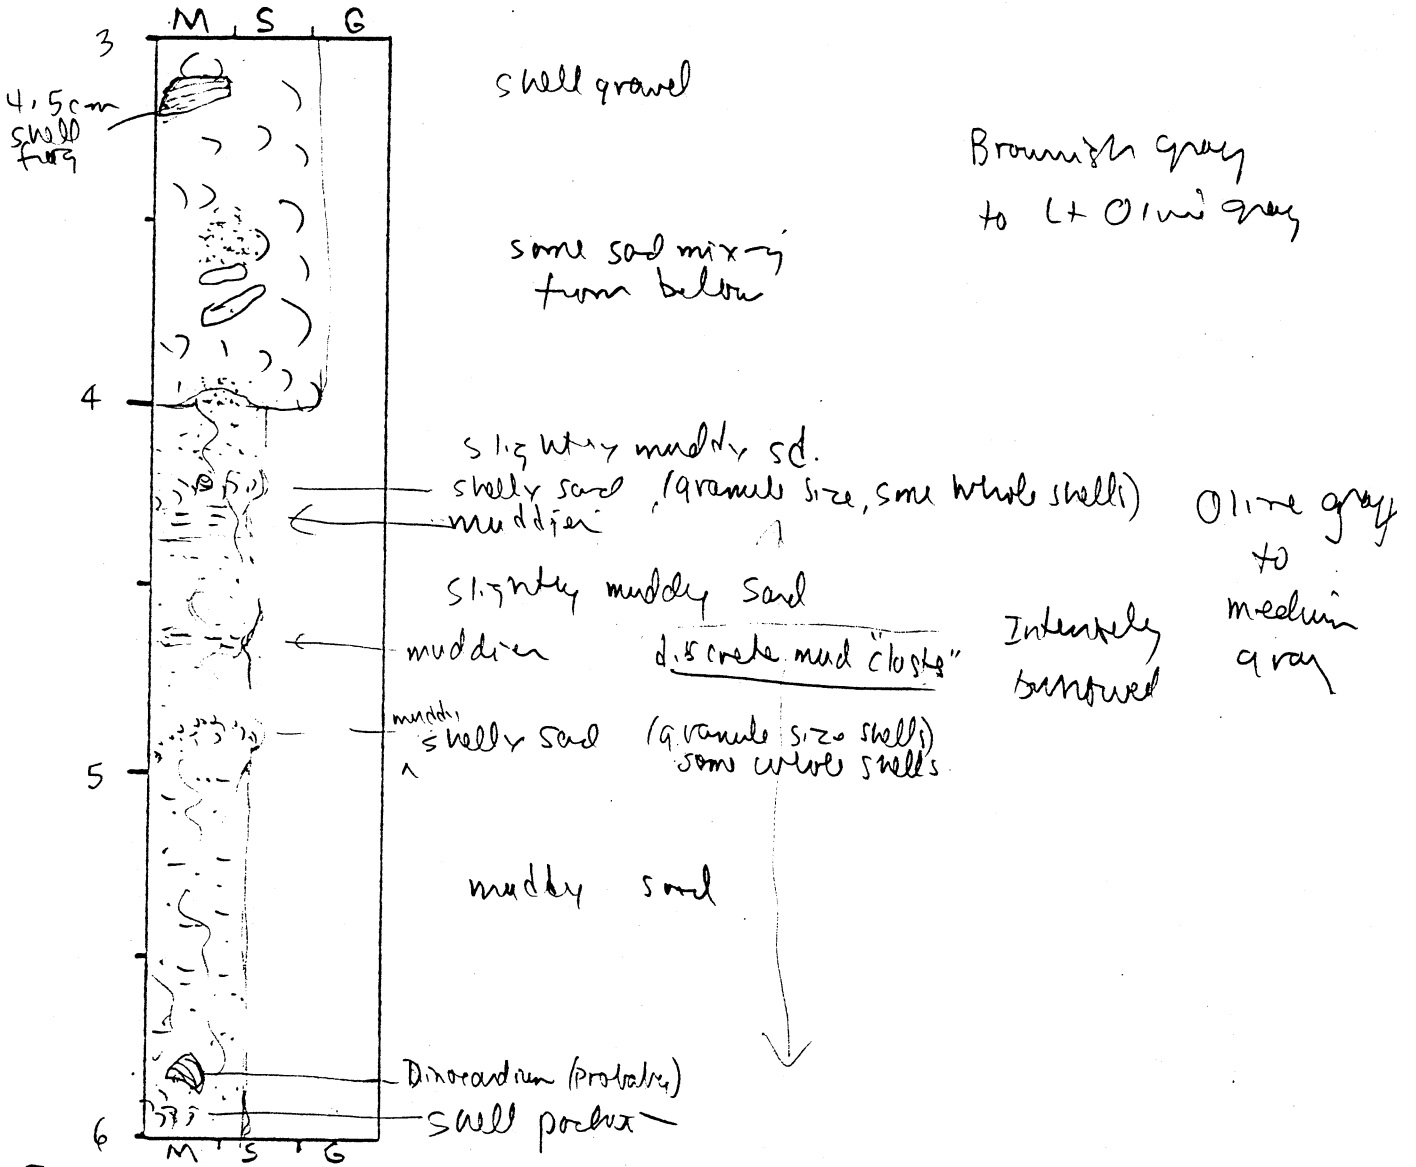 M S G
3
shell gravel
4.5cm
shell
frag
Brownish gray
to Lt Olive gray
some sad mixing
from below
4
slightly muddy sd.
shelly sand (granule size, some whole shells)
muddier
Olive gray
to
medium
gray
slightly muddy sand
muddier
discrete mud "clasts"
Intensely
burrowed
muddy
shelly sand (granule size shells)
some whole shells
5
muddy sand
Dinocardium (probably)
shell pocket
6
M S G